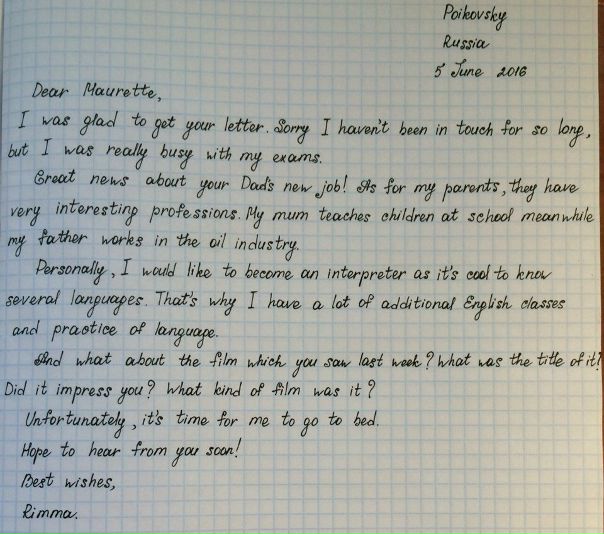 Poikovsky
Russia
5 June 2016
Dear Maurette,
I was glad to get your letter. Sorry I haven't been in touch for so long,
but I was really busy with my exams.
Great news about your Dad's new job! As for my parents, they have
very interesting professions. My mum teaches children at school meanwhile
my father works in the oil industry.
Personally, I would like to become an interpreter as it's cool to know
several languages. That's why I have a lot of additional English classes
and practice of language.
And what about the film which you saw last week? What was the title of it?
Did it impress you? What kind of film was it?
Unfortunately, it's time for me to go to bed.
Hope to hear from you soon!
Best wishes,
Rimma.